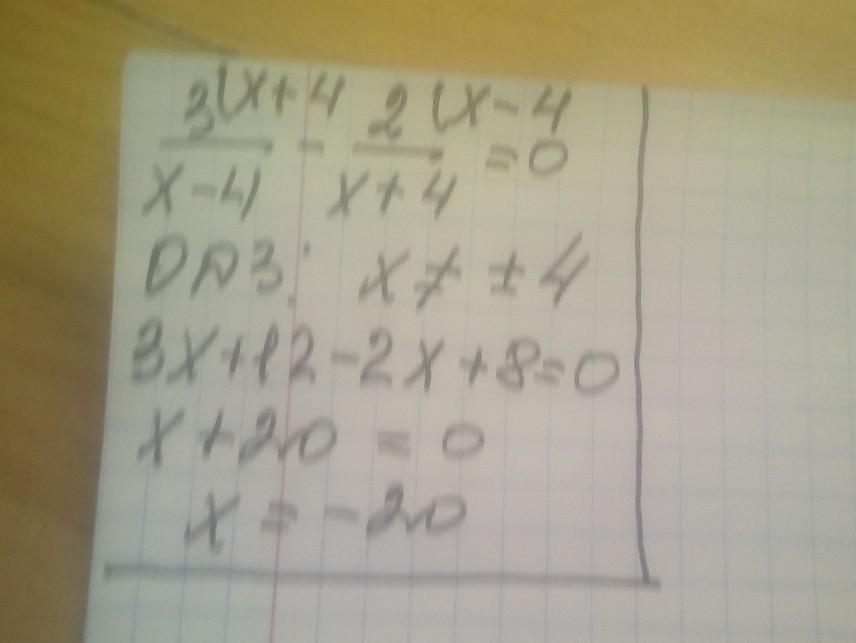 3(x+4 2(x-4
x-4 - x+4 =0
ОДЗ: x≠±4
3x+12-2x+8=0
x+20=0
x=-20